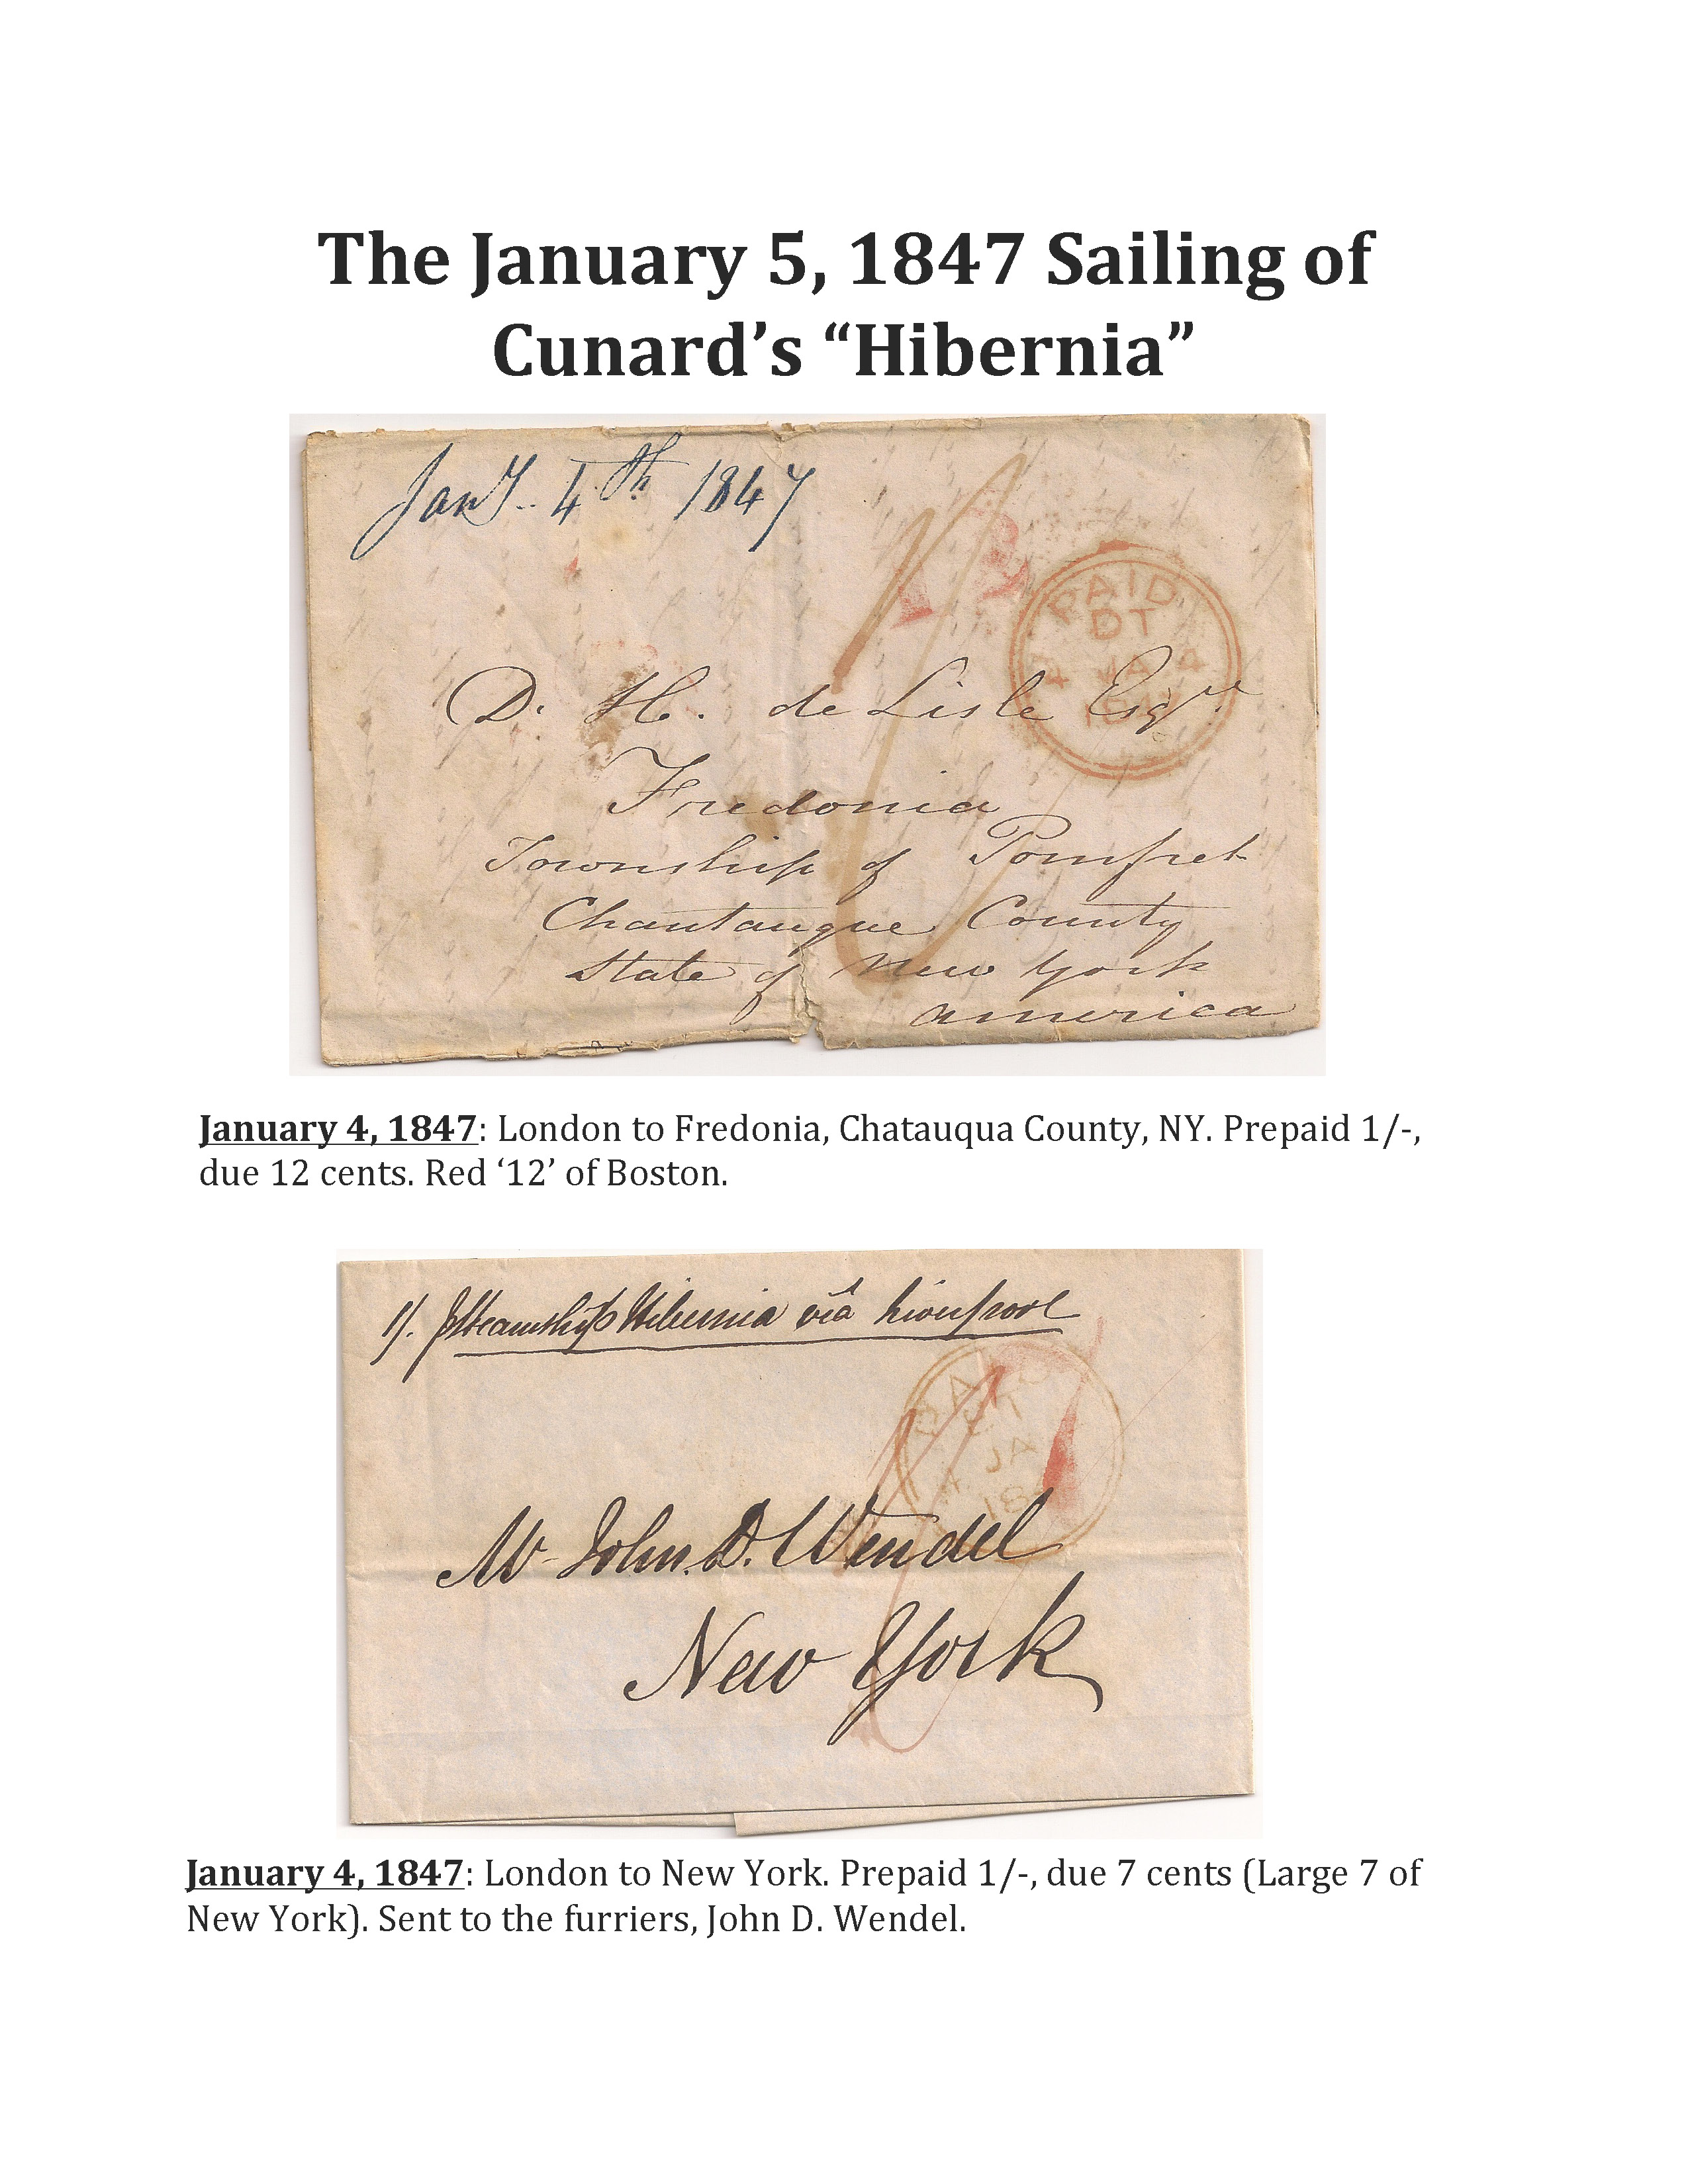 The January 5, 1847 Sailing of
Cunard’s “Hibernia”
Jany. 4th 1847
12
PAID
DT
4 JA 4
D. H. de Lisle Esqre
Fredonia
Township of Pomfret
Chautauque County
State of New York
America
January 4, 1847: London to Fredonia, Chatauqua County, NY. Prepaid 1/-,
due 12 cents. Red ‘12’ of Boston.
1/. Steamship Hibernia viâ Liverpool
JA
18
Mr John. D. Wendel
New York
January 4, 1847: London to New York. Prepaid 1/-, due 7 cents (Large 7 of
New York). Sent to the furriers, John D. Wendel.